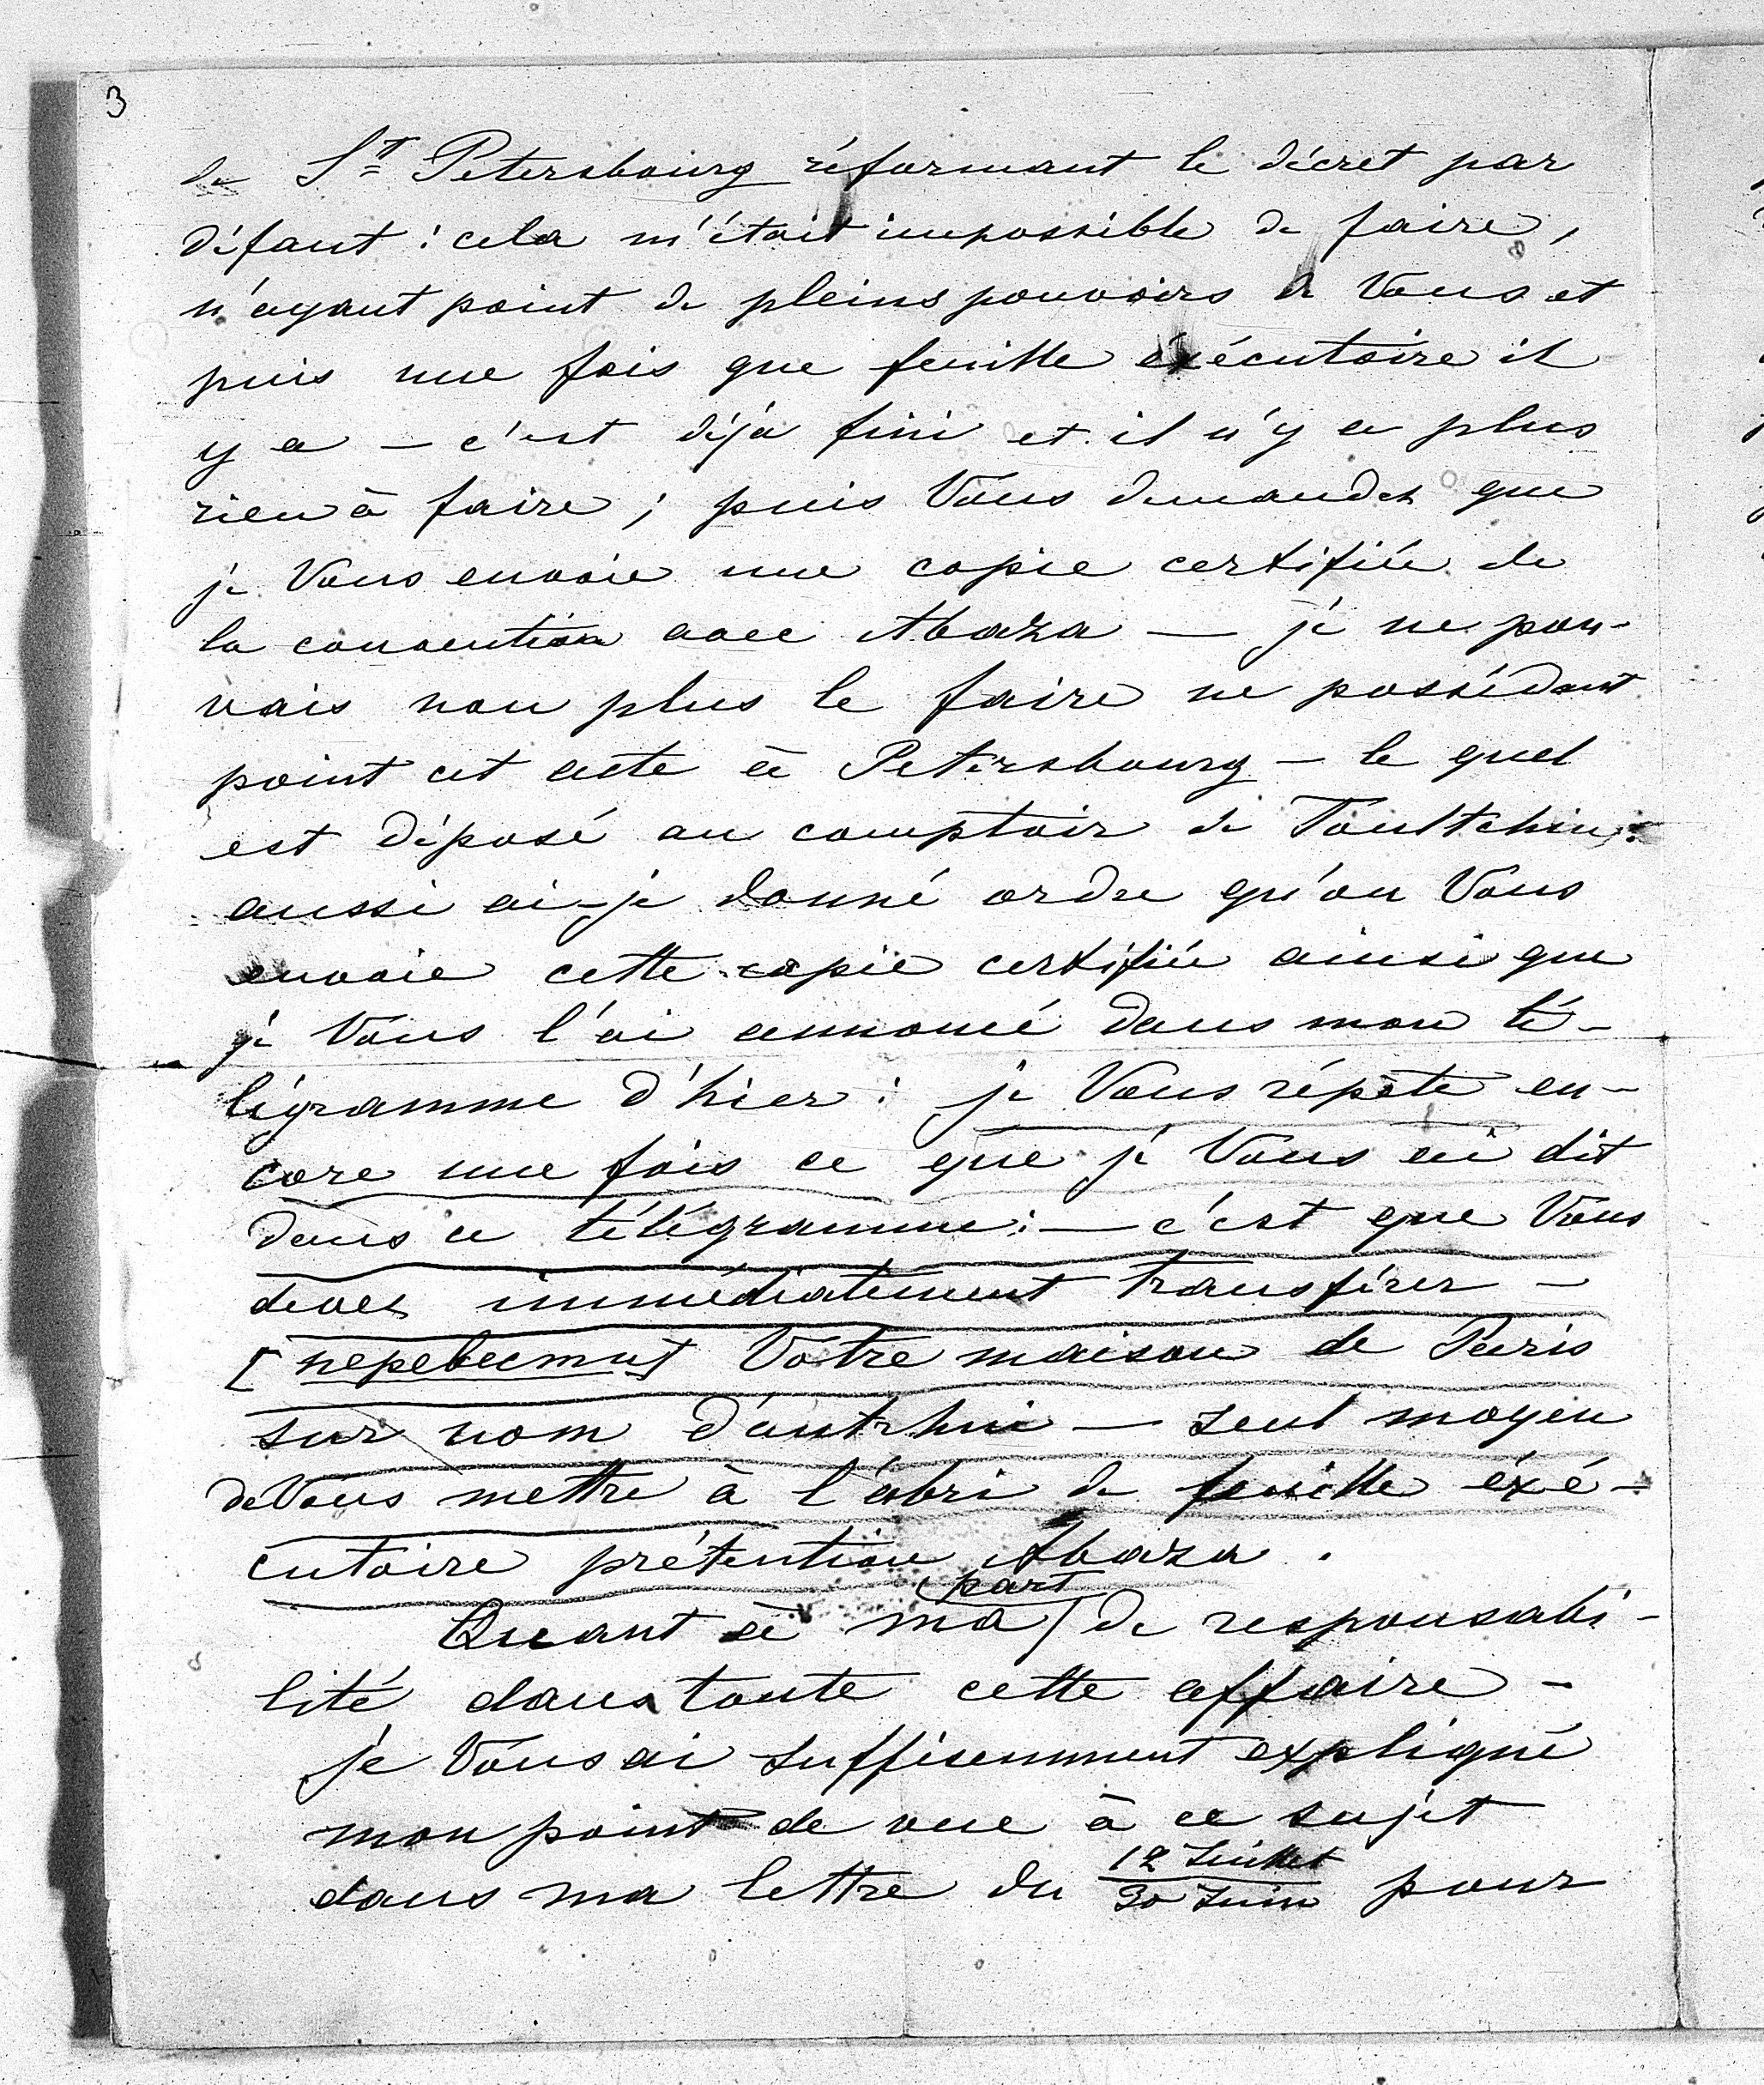 3
de St Petersbourg réformant le décret par
défaut : cela m'était impossible de faire,
n'ayant point de pleins pouvoirs de Vous et
puis une fois que feuille éxécutoire il
y a — c'est déjà fini et il n'y a plus
rien à faire ; puis Vous demandez que
je Vous envoie une copie certifiée de
la convention avec Abaza — je ne pou-
vais non plus le faire ne possédant
point cet acte à Petersbourg — le quel
est déposé au comptoir de Toultchin :
aussi ai-je donné ordre qu'on Vous
envoie cette copie certifiée ainsi que
je Vous l'ai annoncé dans mon té-
légramme d'hier : je Vous répète en-
core une fois ce que je Vous ai dit
dans ce télégramme : — c'est que Vous
devez immédiatement transférer —
[перевести] Votre maison de Paris
sur nom d'autrhui — seul moyen
de Vous mettre à l'abri de feuille éxé-
cutoire prétention Abaza.
Quant à ma part de responsabi-
lité dans toute cette affaire —
je Vous ai suffisemment expliqué
mon point de vue à ce sujet
dans ma lettre du 12 Juillet/30 Juin pour